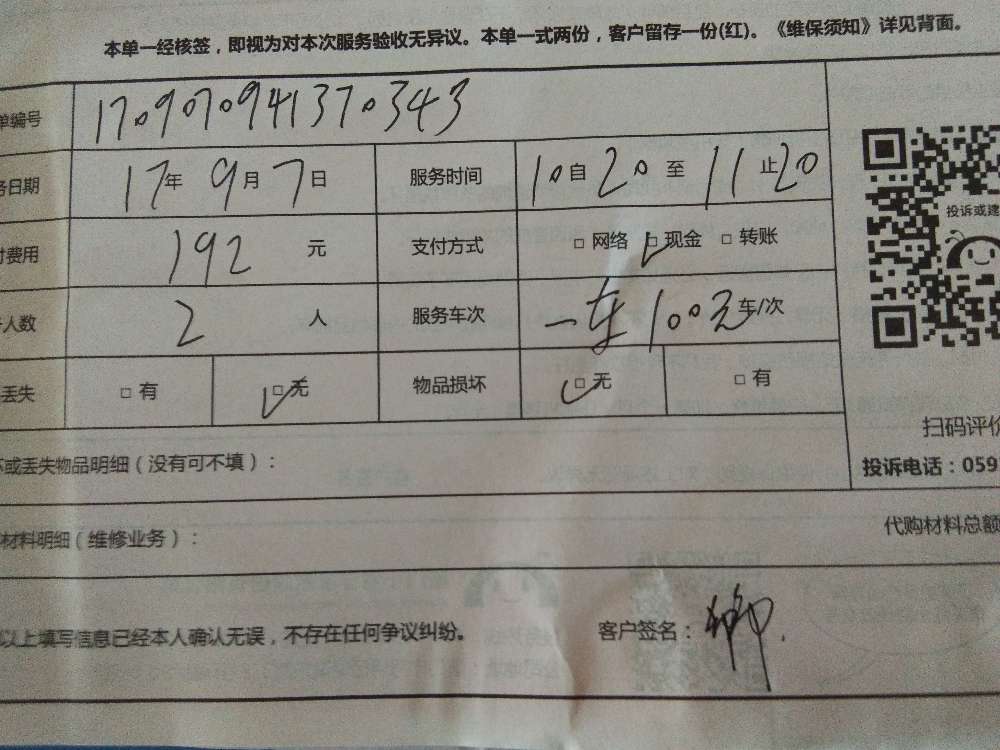 本单一经核签，即视为对本次服务验收无异议。本单一式两份，客户留存一份(红)。《维保须知》详见背面。
单编号 1709070941370343
务日期 17年 9月 7日 服务时间 10自20至11止20
付费用 192 元 支付方式 □网络 □现金 □转账
人数 2 人 服务车次 一车100元车/次
丢失 □有 □无 物品损坏 □无 □有
投诉或建
扫码评价
投诉电话：059
坏或丢失物品明细（没有可不填）：
材料明细（维修业务）： 代购材料总额
以上填写信息已经本人确认无误，不存在任何争议纠纷。 客户签名：